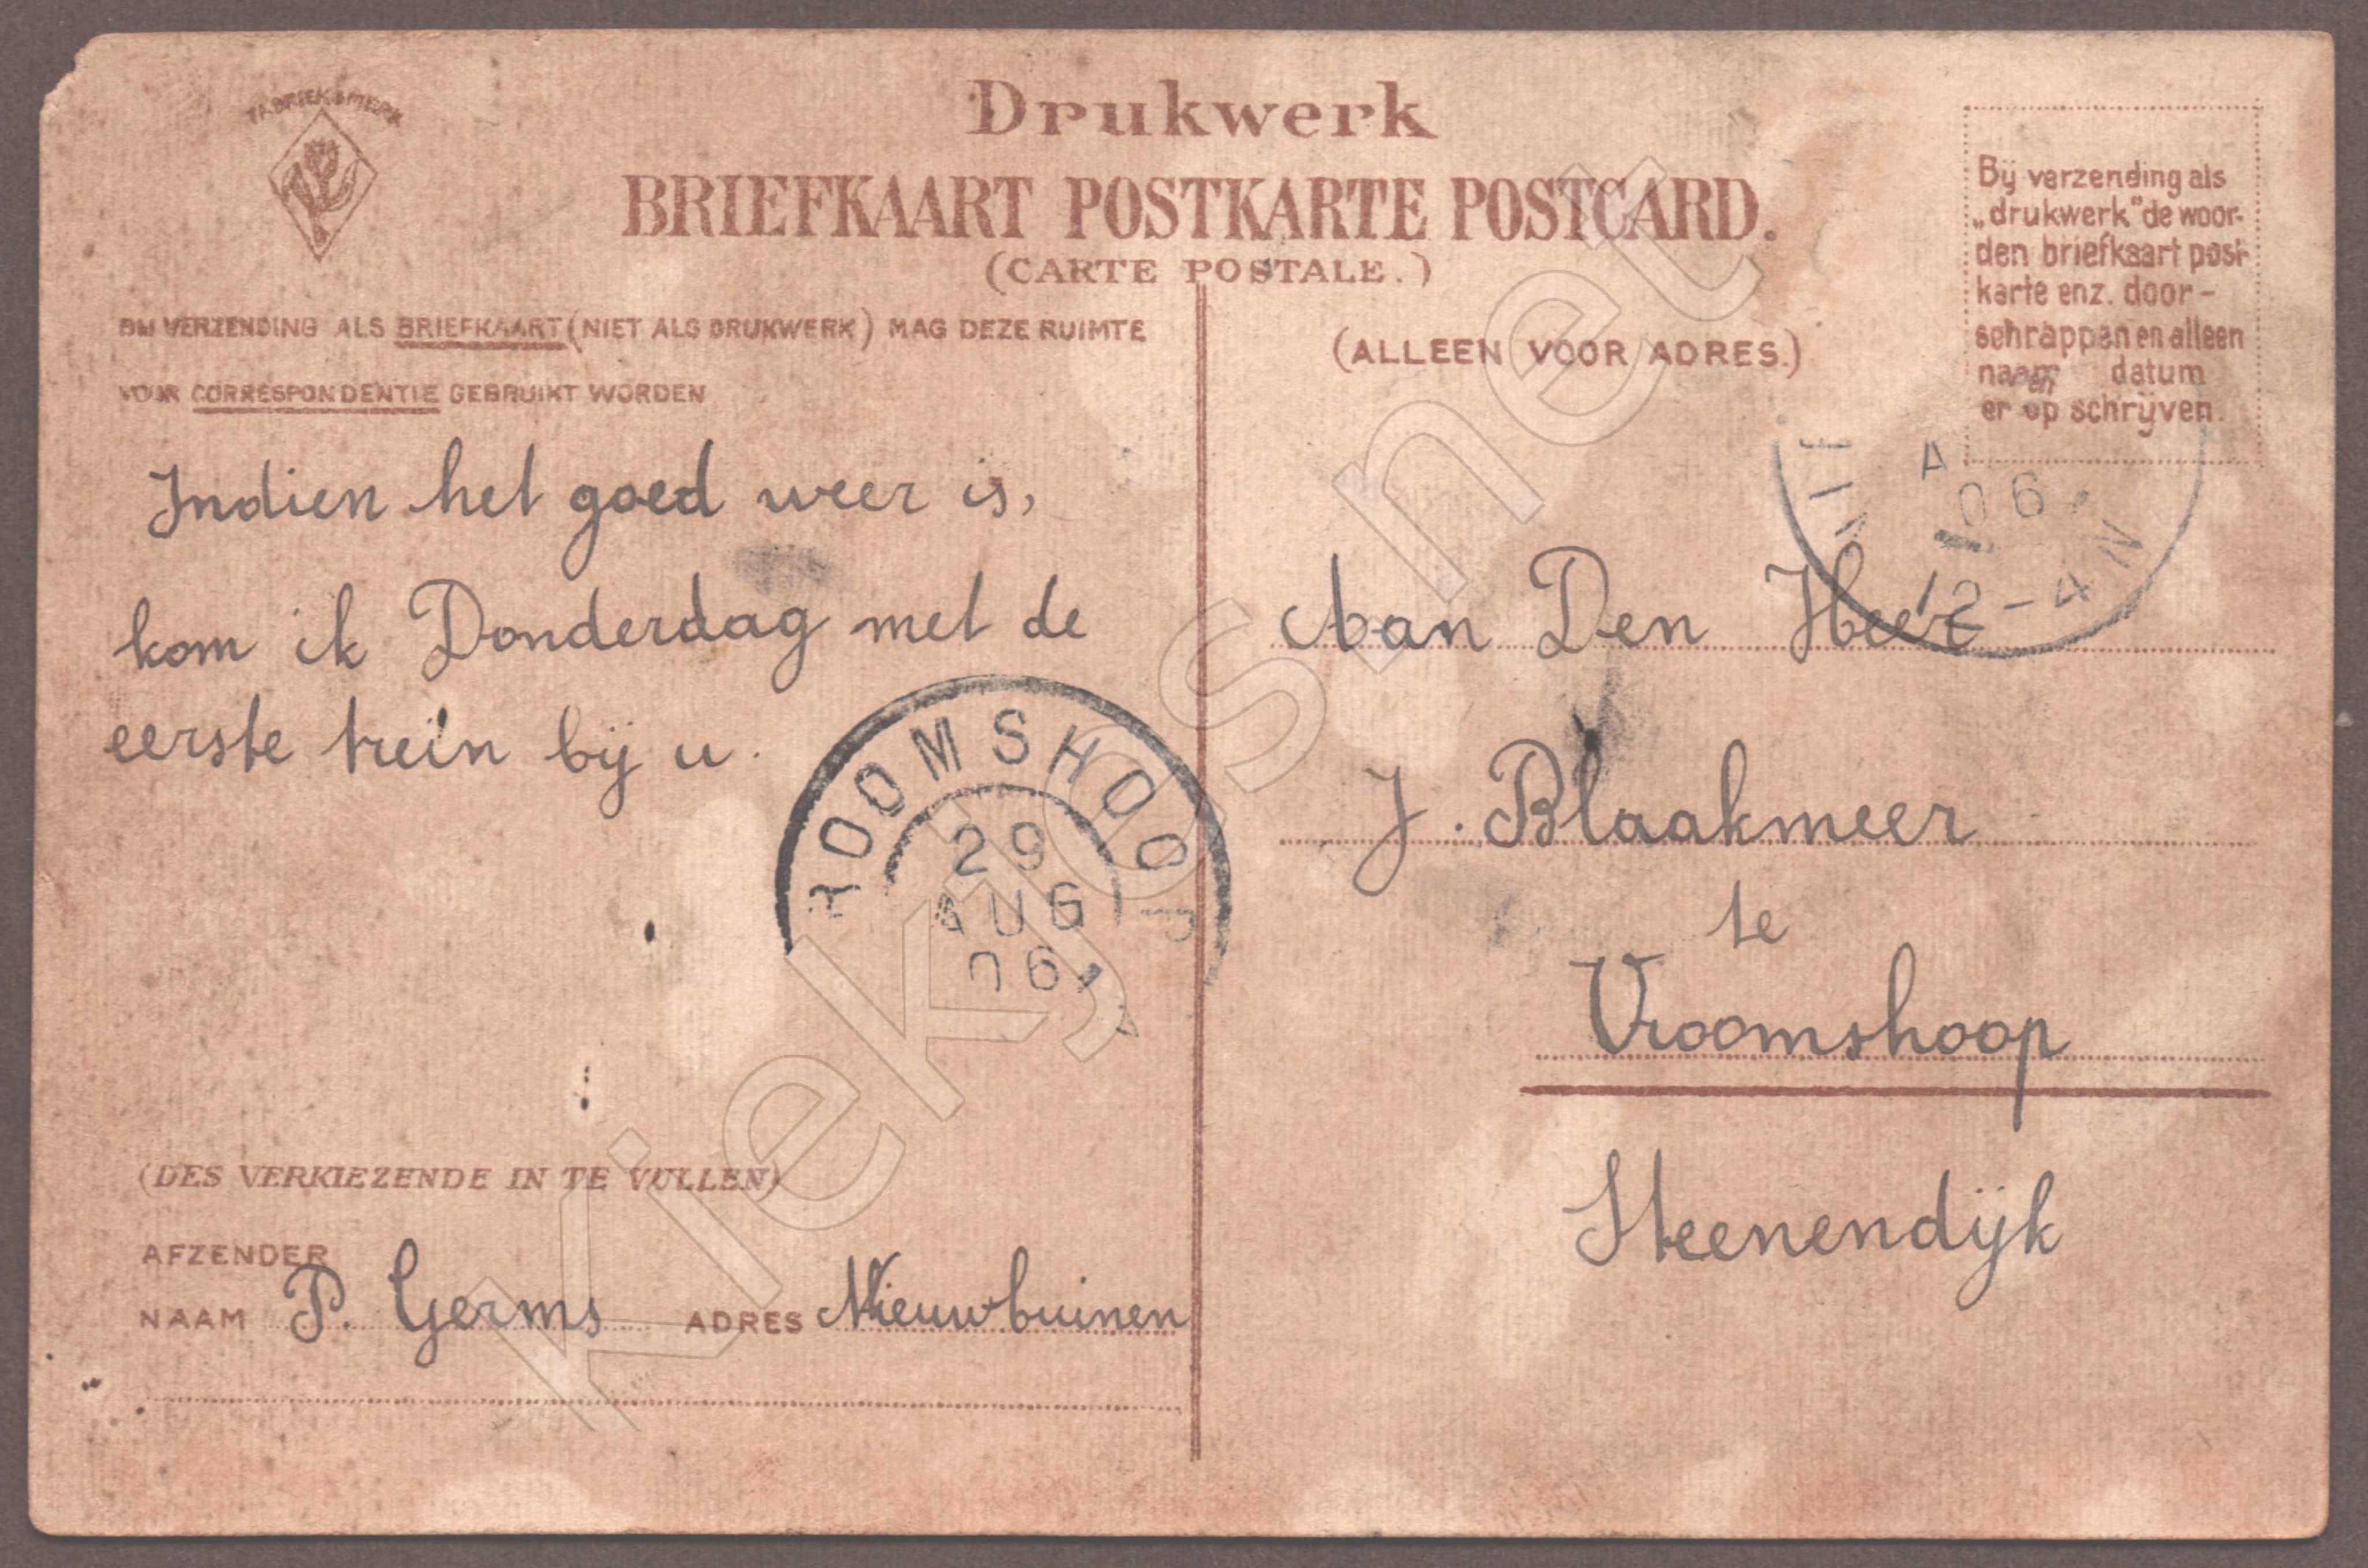 FABRIEKSMERK
Drukwerk
BRIEFKAART POSTKARTE POSTCARD.
(CARTE POSTALE.)
BIJ VERZENDING ALS BRIEFKAART (NIET ALS DRUKWERK) MAG DEZE RUIMTE
VOOR CORRESPONDENTIE GEBRUIKT WORDEN
Indien het goed weer is,
kom ik Donderdag met de
eerste trein bij u.
ROOMSHOO
29
AUG
06
(DES VERKIEZENDE IN TE VULLEN)
AFZENDER
NAAM P. Germs ADRES Nieuwbuinen
(ALLEEN VOOR ADRES.)
Bij verzending als
„drukwerk" de woor-
den briefkaart post-
karte enz. door-
schrappen en alleen
naam en datum
er op schrijven.
06
12-4N
Aan Den Heer
J. Blaakmeer
te
Vroomshoop
Steenendijk
Kiekjesnet